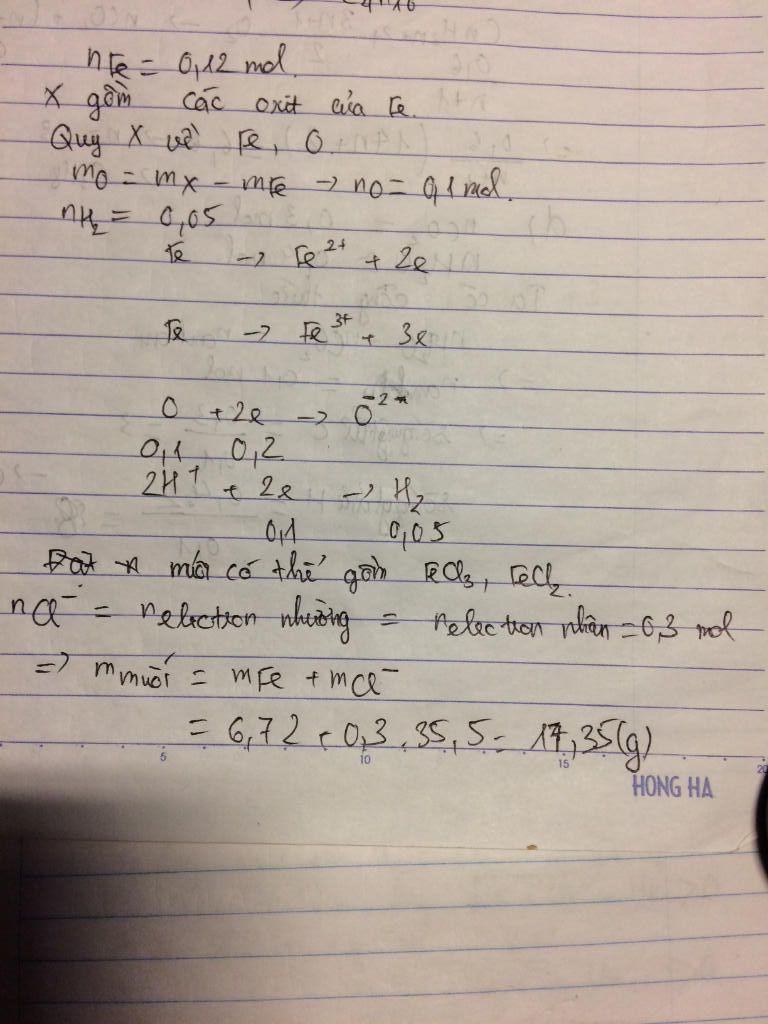 nFe = 0,12 mol.
X gồm các oxit của Fe.
Quy X về Fe, O.
mO = mX - mFe → nO = 0,1 mol.
nH2 = 0,05
Fe → Fe2+ + 2e
Fe → Fe3+ + 3e
O + 2e → O-2
0,1 0,2
2H+ + 2e → H2
0,1 0,05
muối có thể gồm FeCl3, FeCl2.
nCl- = nelection nhường = nelection nhận = 0,3 mol
=> mmuối = mFe + mCl-
= 6,72 + 0,3 . 35,5 = 17,35(g)
5 10 15 20
HONG HA